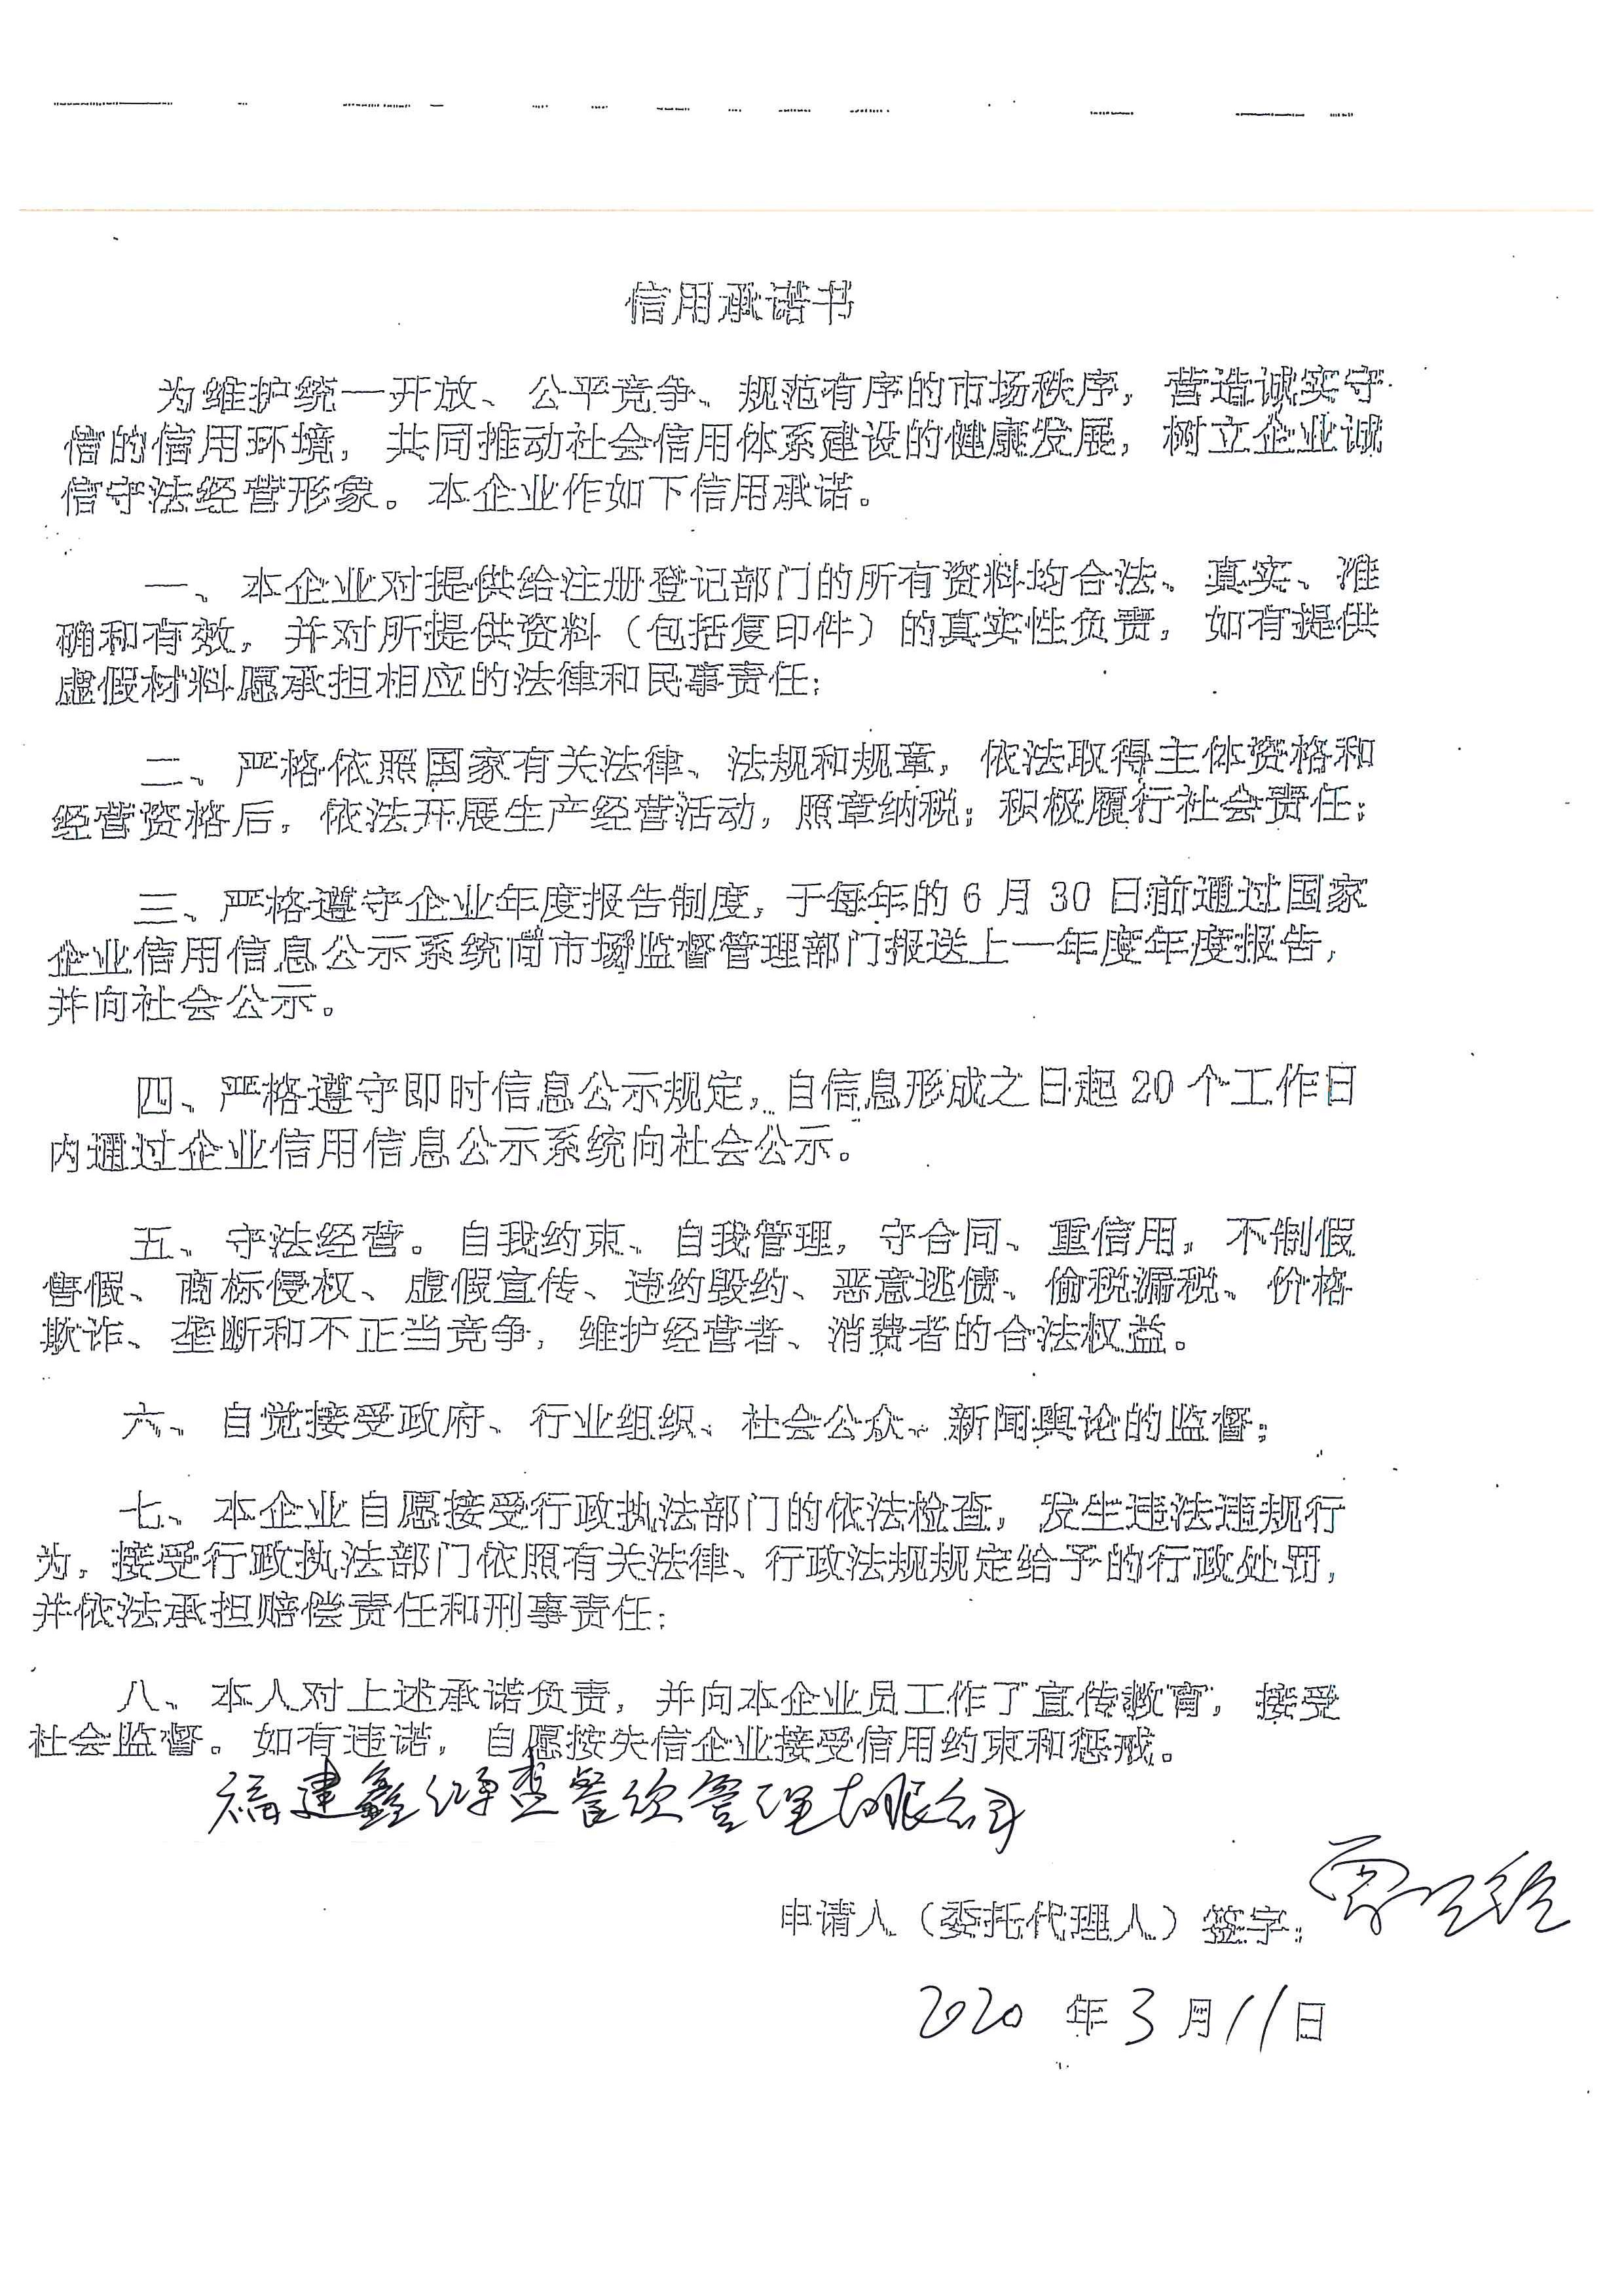 信用承诺书
为维护统一开放、公平竞争、规范有序的市场秩序，营造诚实守
信的信用环境，共同推动社会信用体系建设的健康发展，树立企业诚
信守法经营形象。本企业作如下信用承诺。
一、本企业对提供给注册登记部门的所有资料均合法、真实、准
确和有效，并对所提供资料（包括复印件）的真实性负责，如有提供
虚假材料愿承担相应的法律和民事责任；
二、严格依照国家有关法律、法规和规章，依法取得主体资格和
经营资格后，依法开展生产经营活动，照章纳税；积极履行社会责任；
三、严格遵守企业年度报告制度，于每年的 6 月 30 日前通过国家
企业信用信息公示系统向市场监督管理部门报送上一年度年度报告，
并向社会公示。
四、严格遵守即时信息公示规定，自信息形成之日起 20 个工作日
内通过企业信用信息公示系统向社会公示。
五、守法经营。自我约束、自我管理，守合同、重信用，不制假
售假、商标侵权、虚假宣传、违约毁约、恶意逃债、偷税漏税、价格
欺诈、垄断和不正当竞争，维护经营者、消费者的合法权益。
六、自觉接受政府、行业组织、社会公众、新闻舆论的监督；
七、本企业自愿接受行政执法部门的依法检查，发生违法违规行
为，接受行政执法部门依照有关法律、行政法规规定给予的行政处罚，
并依法承担赔偿责任和刑事责任；
八、本人对上述承诺负责，并向本企业员工作了宣传教育，接受
社会监督。如有违诺，自愿按失信企业接受信用约束和惩戒。
福建鑫管理有限公司
申请人（委托代理人）签字：
2020 年 3 月 11 日